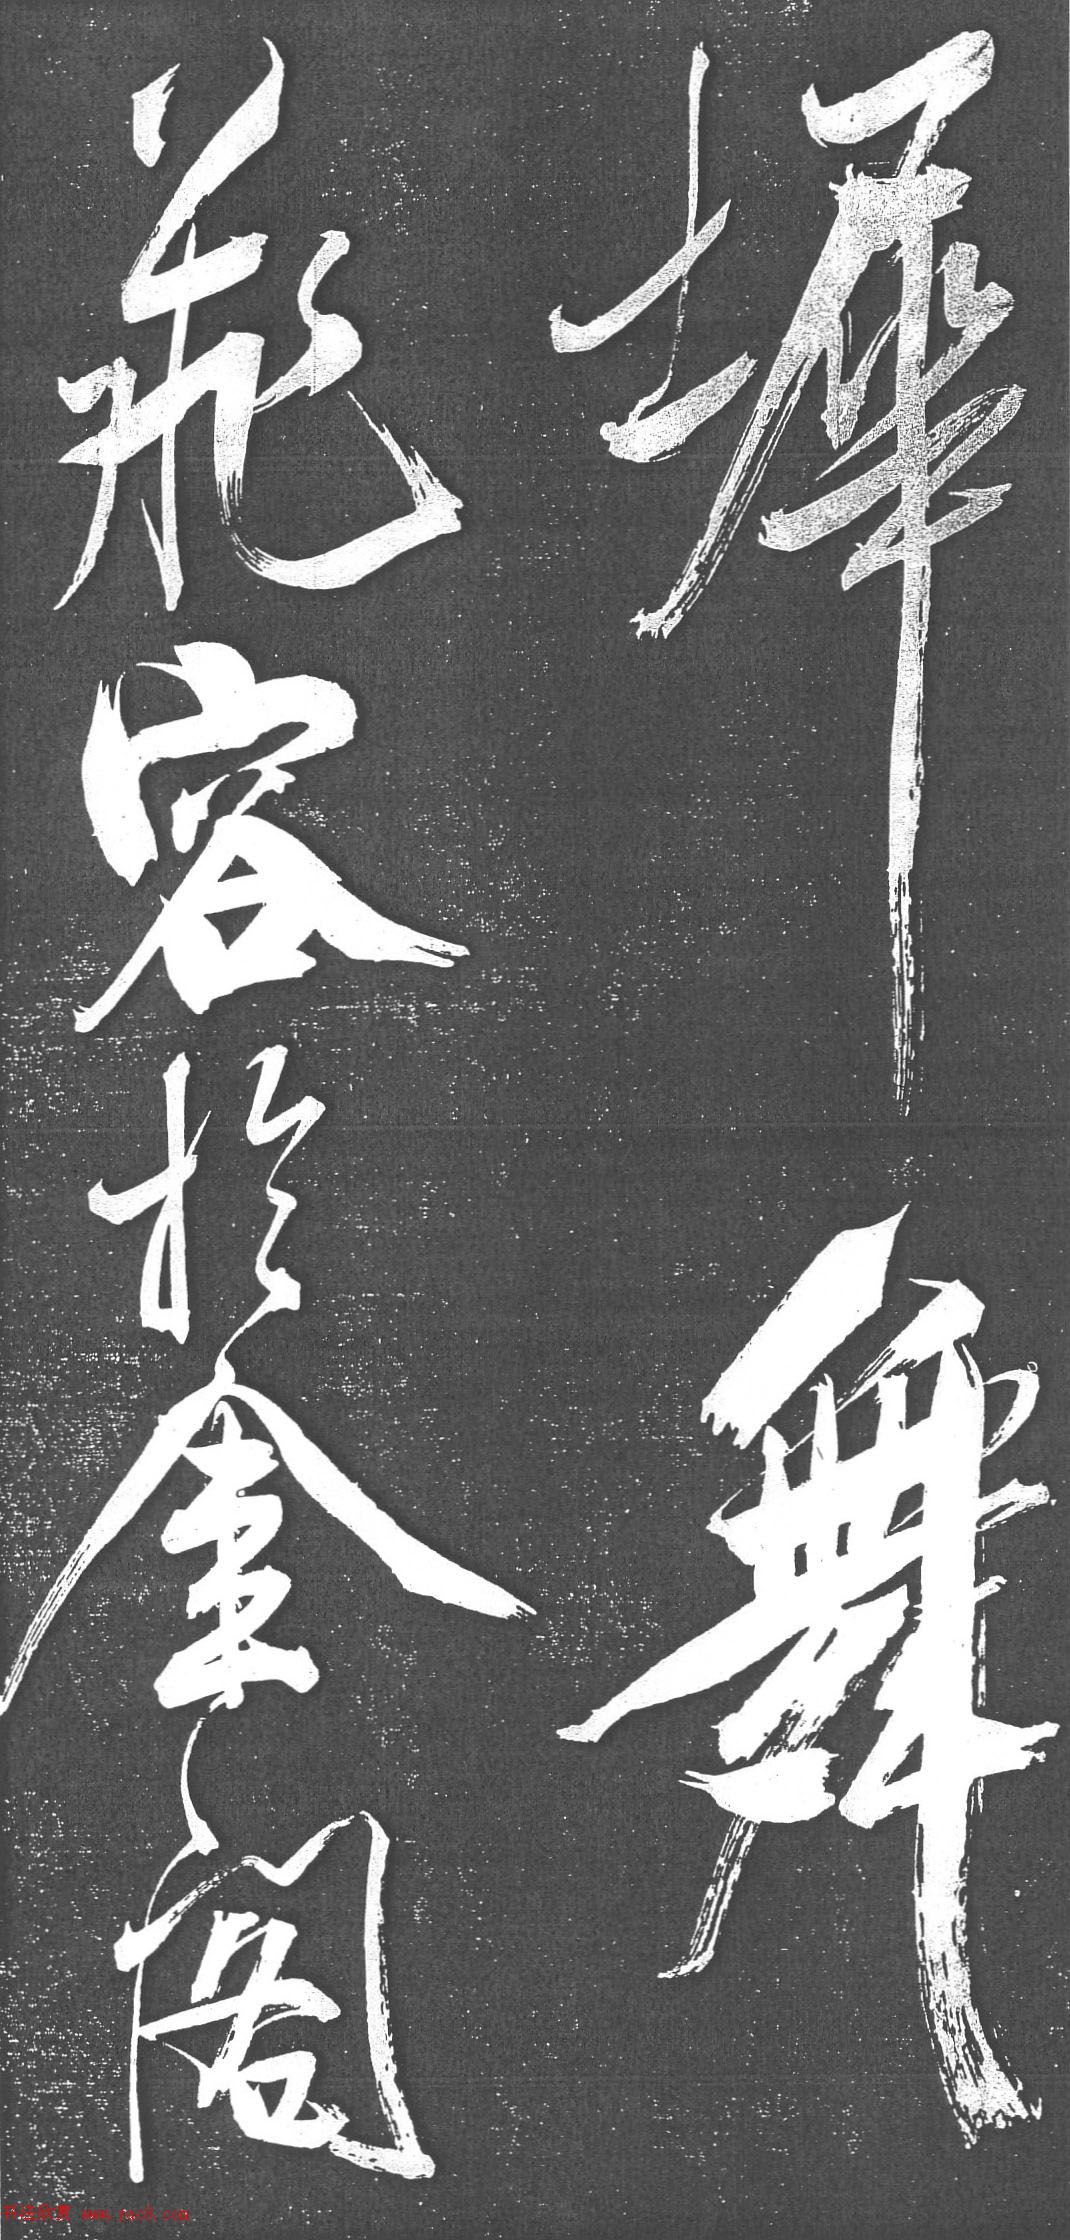 墀舞
飛容於金閣
书法欣赏 www.yac8.com